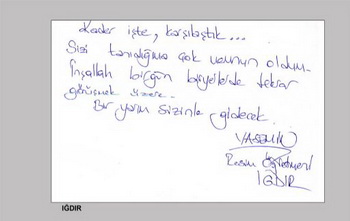 Kader işte, karşılaştık...
Sizi tanıdığıma çok memnun oldum.
İnşallah birgün biryerlerde tekrar
görüşmek üzere.
Bir yanım sizinle gidecek.
YASEMİN
Resim Öğretmeni
IĞDIR
IĞDIR